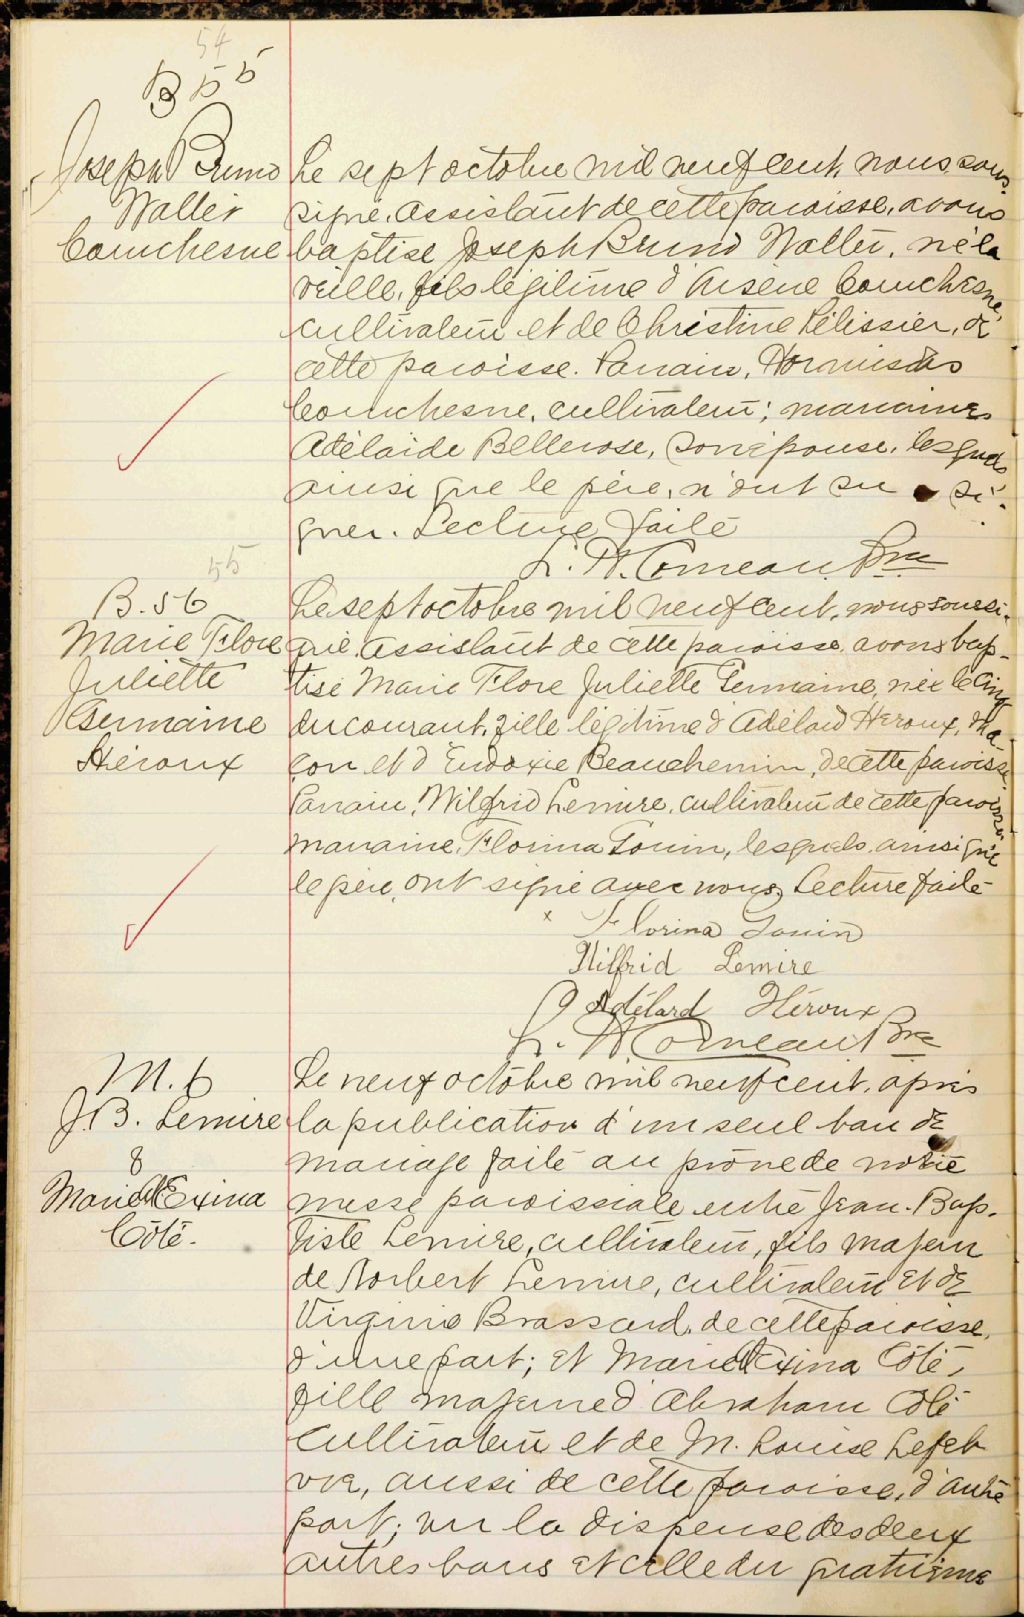 54
B 55
Joseph Bruno
Walter
Courchesne
Le sept octobre mil neuf cent, nous sous
signé, assistant de cette paroisse, avons
baptisé Joseph Bruno Walter, né la
veille, fils légitime d'Arsène Courchesne,
cultivateur et de Christine Pélissier, de
cette paroisse. Parrain, Hormisdas
Courchesne, cultivateur; marraine
Adélaïde Bellerose, son épouse, lesquels
ainsi que le père, n'ont su si-
gner. Lecture faite
L. W. Comeau Ptre
55
B. 56
Marie Flore
Juliette
Germaine
Héroux
Le sept octobre mil neuf cent, nous soussi-
gné, assistant de cette paroisse avons bap-
tisé Marie Flore Juliette Germaine, née le cinq
du courant, fille légitime d'Adélard Héroux, ma-
çon et d'Eudoxie Beauchemin, de cette paroisse.
Parrain, Wilfrid Lemire, cultivateur de cette paroisse,
marraine, Florina Gouin, lesquels ainsi que
le père, ont signé avec nous, Lecture faite
x Florina Gouin
Wilfrid Lemire
Adélard Héroux
L. W. Comeau Ptre
M. 6
J. B. Lemire
&
Marie Exina
Côté.
Le neuf octobre mil neuf cent, après
la publication d'un seul ban de
mariage faite au prône de notre
messe paroissiale entre Jean-Bap-
tiste Lemire, cultivateur, fils majeur
de Norbert Lemire, cultivateur et de
Virginie Brassard, de cette paroisse,
d'une part; et Marie Exina Côté,
fille majeure d'Abraham Côté
cultivateur et de M. Louise Lefeb
vre, aussi de cette paroisse, d'autre
part; vu la dispense des deux
autres bans et celle du quatrième